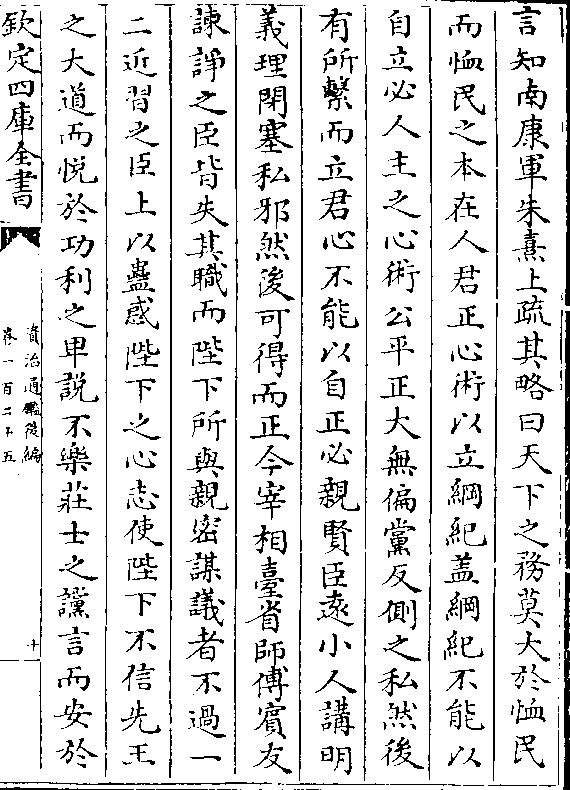 言知南康軍朱熹上疏其略曰天下之務莫大於恤民
而恤民之本在人君正心術以立綱紀盖綱紀不能以
自立必人主之心術公平正大無偏黨反側之私然後
有所繫而立君心不能以自正必親賢臣遠小人講明
義理閉塞私邪然後可得而正今宰相臺省師傅賓友
諫諍之臣皆失其職而陛下所與親密謀議者不過一
二近習之臣上以蠱惑陛下之心志使陛下不信先王
之大道而悅於功利之卑說不樂莊士之讜言而安於
欽定四庫全書
資治通鑑後編
卷一百二十五
十